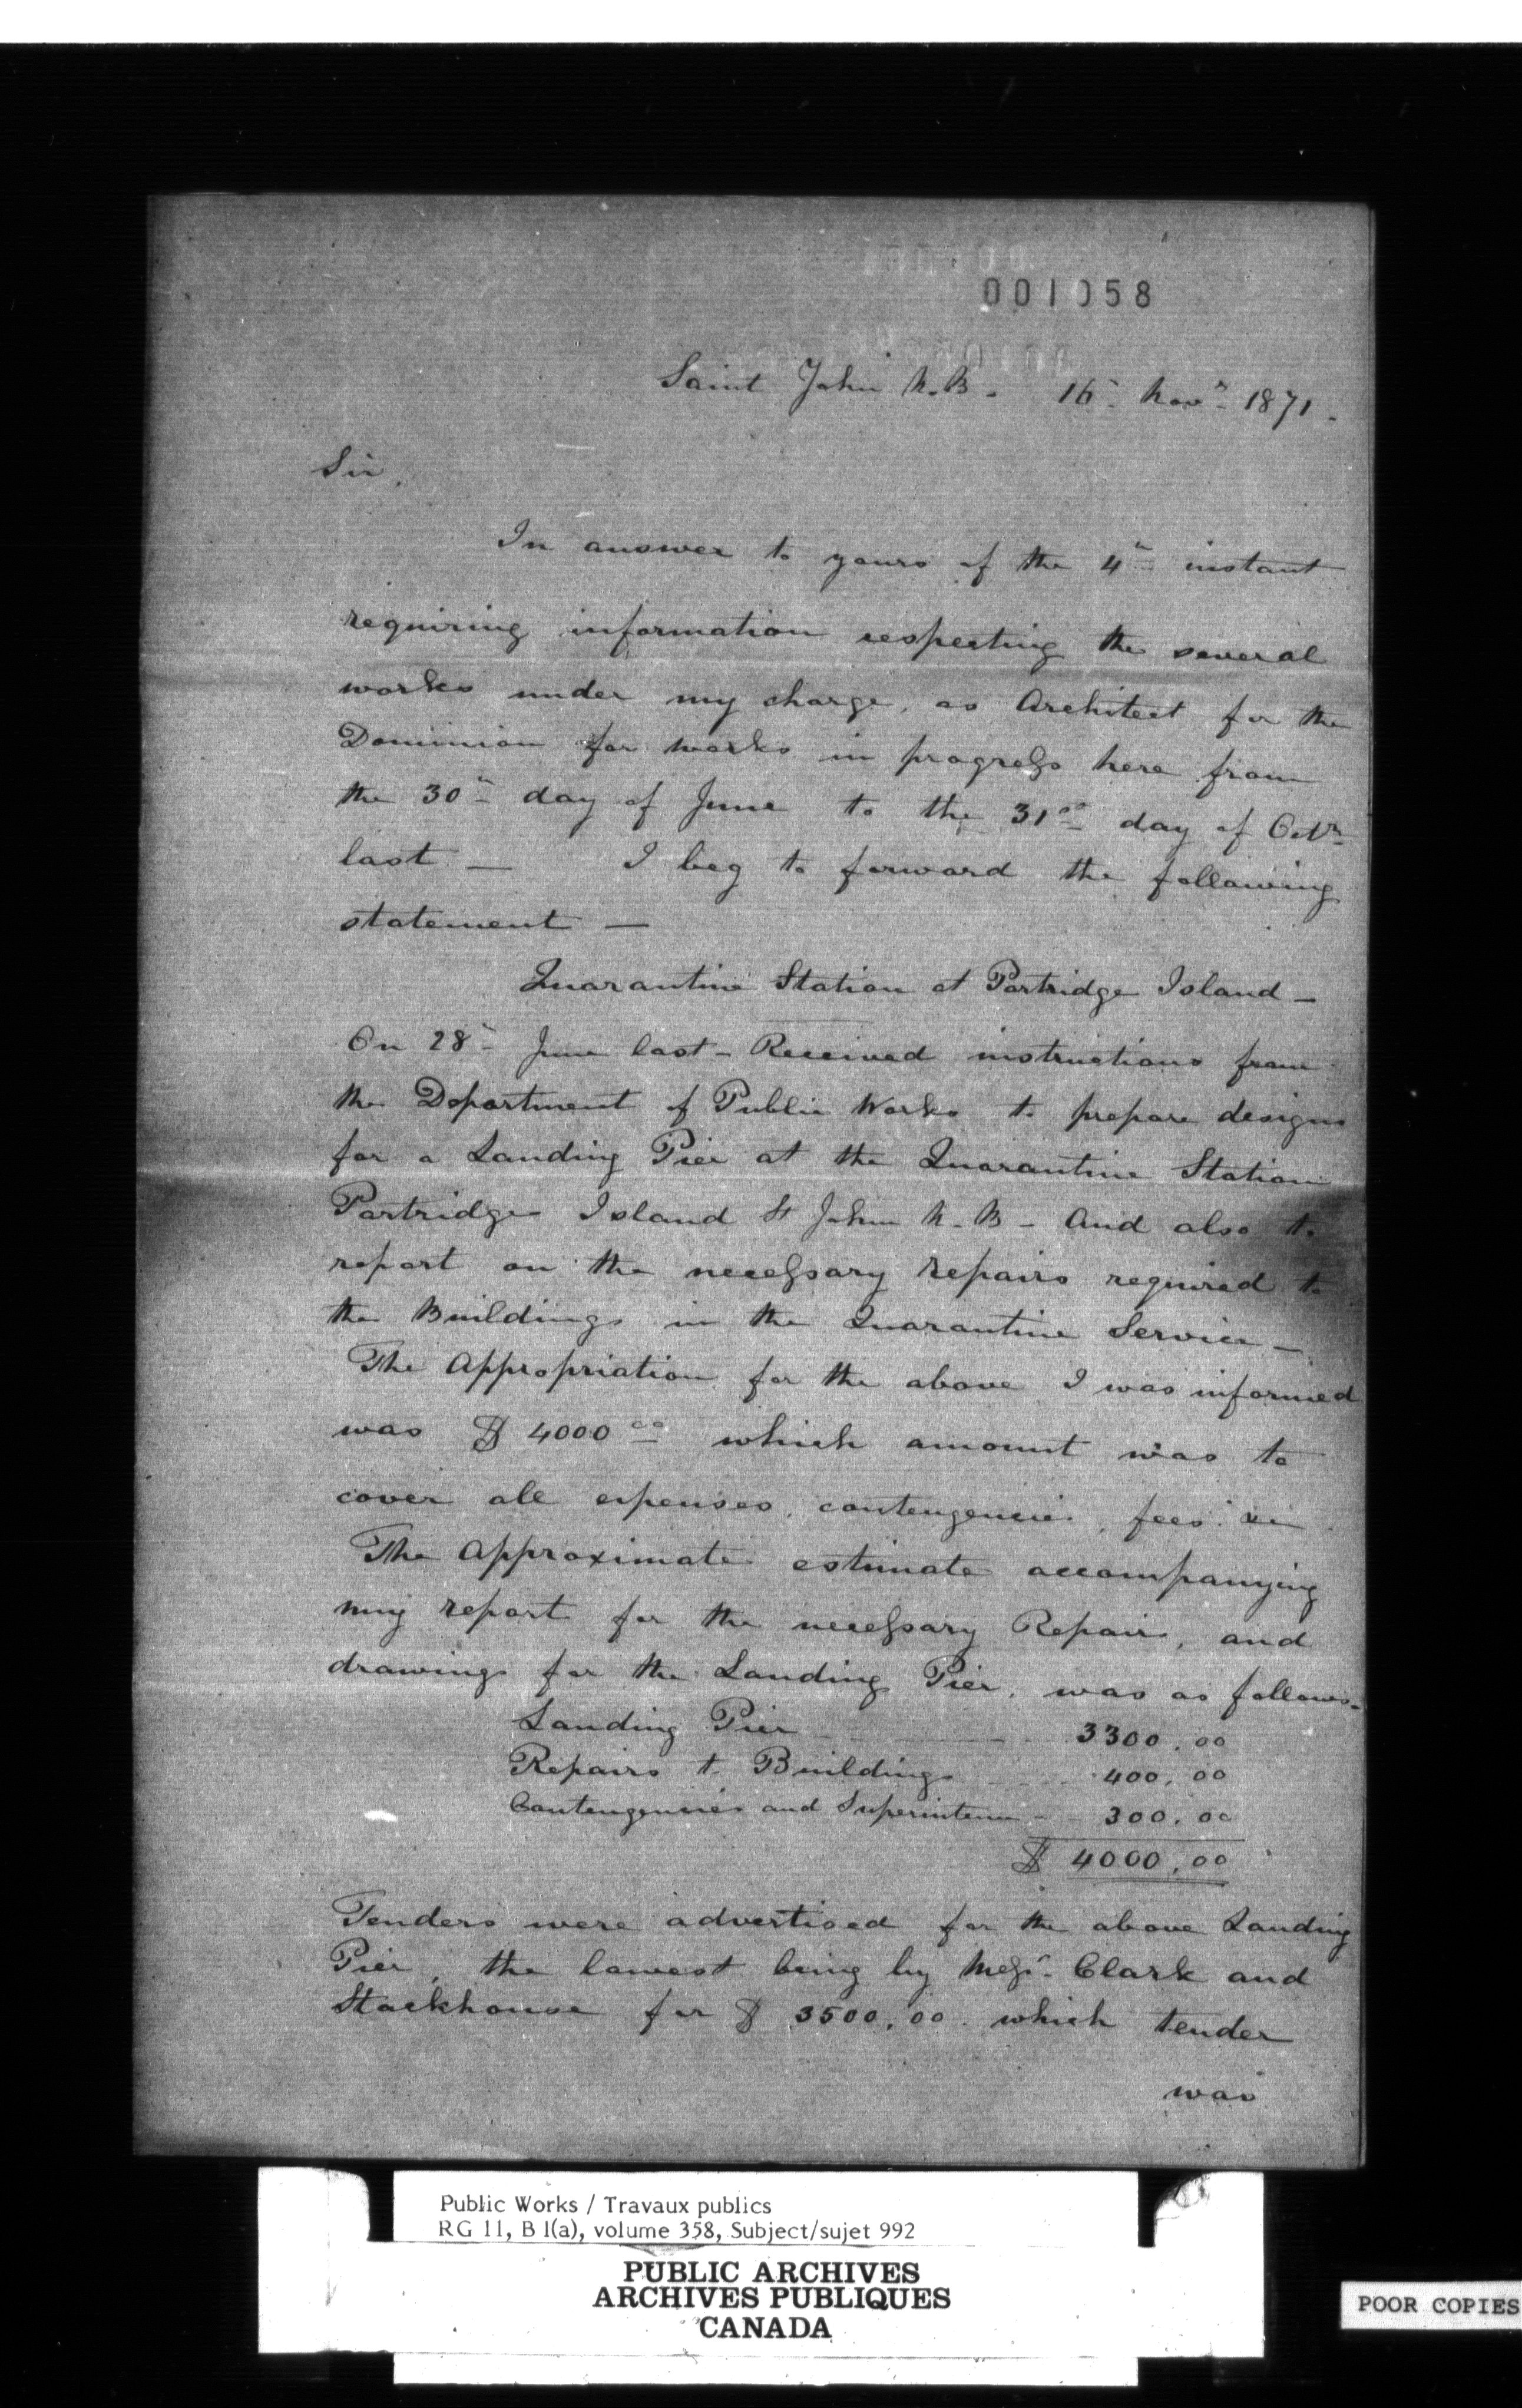 001058
Saint John N.B. 16th Novr 1871.
Sir,
In answer to yours of the 4th instant
requiring information respecting the several
works under my charge, as Architect for the
Dominion for works in progress here from
the 30th day of June to the 31st day of Octr
last — I beg to forward the following
statement —
Quarantine Station at Partridge Island —
On 28th June last - Received instructions from
the Department of Public Works to prepare designs
for a Landing Pier at the Quarantine Station
Partridge Island St John N.B - And also to
report on the necessary repairs required to
the Buildings in the Quarantine Service —
The Appropriation for the above I was informed
was $ 4000 00 which amount was to
cover all expenses, contengencies, fees &c
The Approximate estimate accompanying
my report for the necessary Repairs, and
drawings for the Landing Pier, was as follows -
Landing Pier 3300.00
Repairs to Buildings 400.00
Contengencies and Superinten - 300.00
$ 4000.00
Tenders were advertised for the above Landing
Pier, the lowest being by Messrs. Clark and
Stackhouse for $ 3500.00 which tender
was
Public Works / Travaux publics
RG 11, B 1(a), volume 358, Subject/sujet 992
PUBLIC ARCHIVES
ARCHIVES PUBLIQUES
CANADA
POOR COPIES